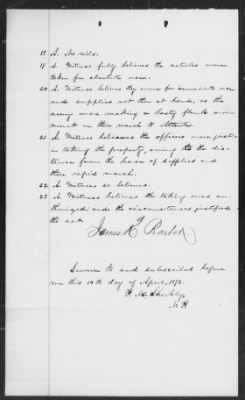 18 A. No rails.
19 A. Witness fully believes the articles were
taken for absolute use.
20 A. Witness believes they were for immediate use
and supplies not then at hands, as the
army was making a hasty flank move
ment on their march to Atlanta.
21 A. Witness believes the officers were justified
in taking the property, owing to the dis
tance from the base of supplies and
their rapid march.
22 A. Witness so believes.
23 A. Witness believes the taking was au
thorized and the circumstances justified
the act.
James Barber
Sworn to and subscribed before
me this 10th day of April, 1872.